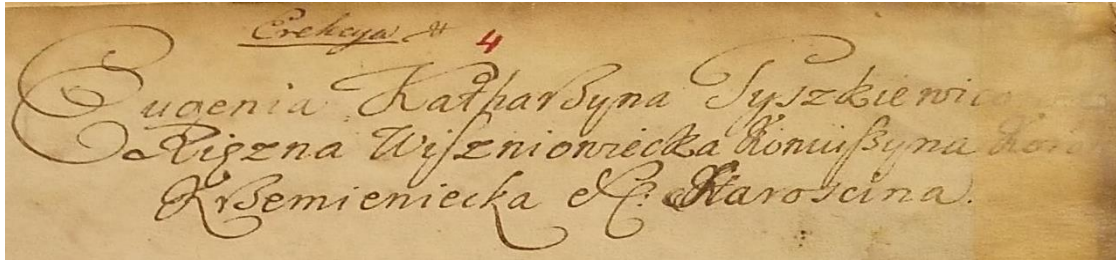 Erekcya
4
Eugenia Katharzyna Tyszkiewic
Xięzna Wiszniowiecka Koniuszyna
Krzemieniecka &c: Starościna.